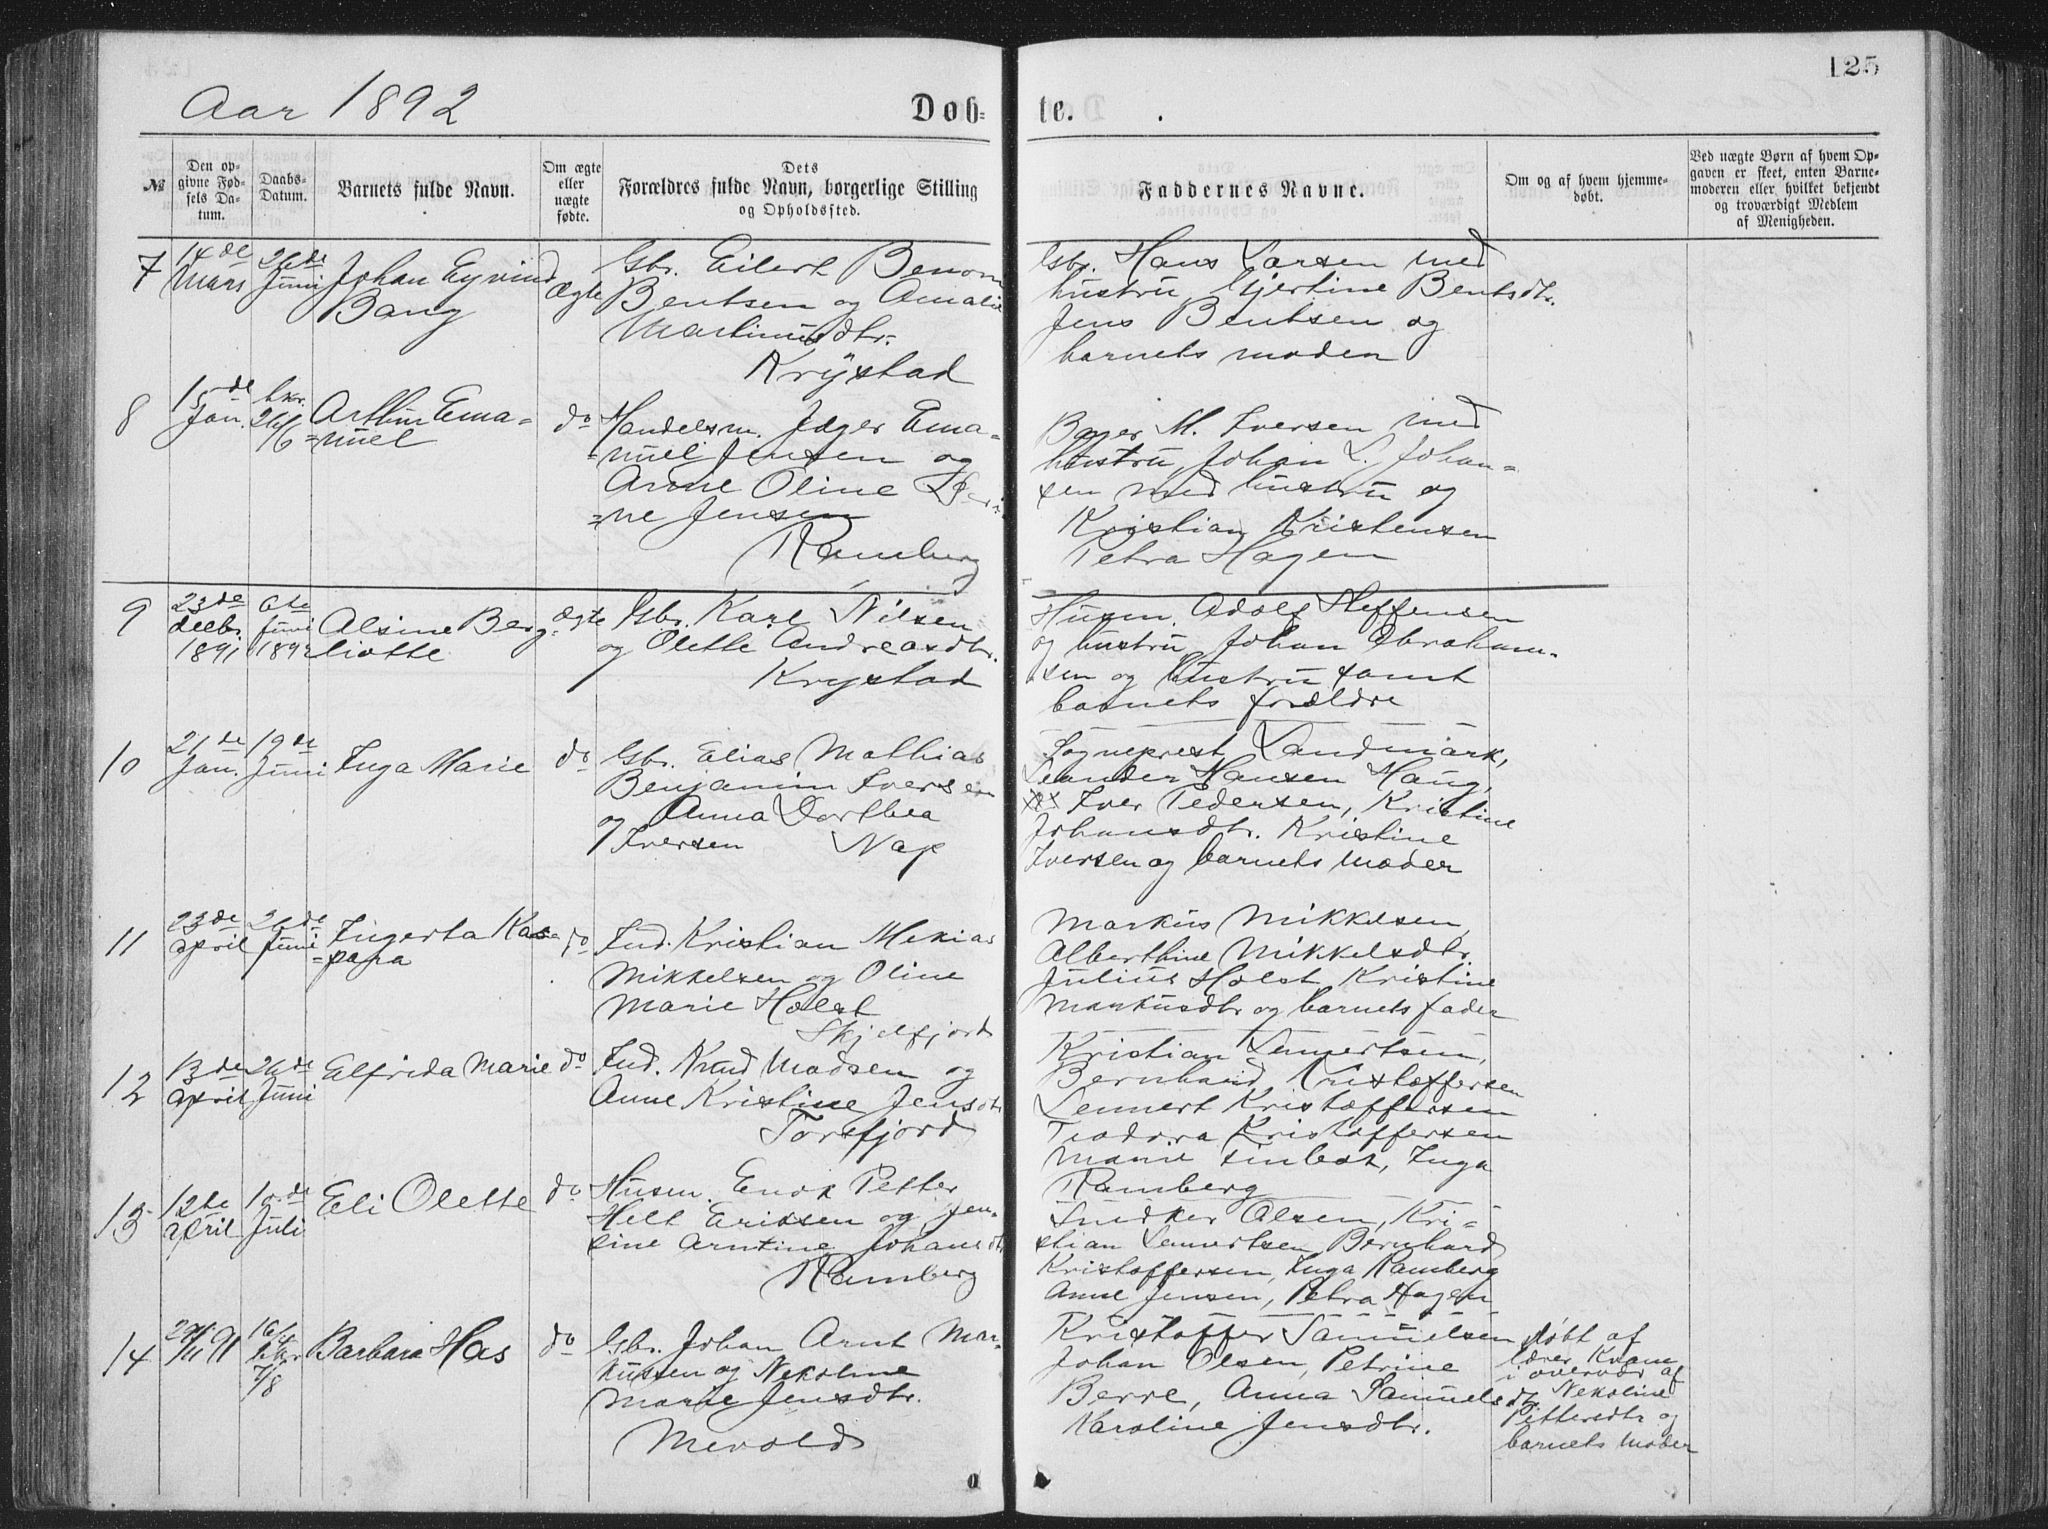 125
Aar 1892
Döb=
te.
№
Den op-
givne Fød-
sels Da-
tum.
Daabs-
Datum.
Barnets fulde Navn.
Om ægte
eller
uægte
fødte.
Dets
Forældres fulde Navn, borgerlige Stilling
og Opholdssted.
Faddernes Navne.
Om og af hvem hjemme-
døbt.
Ved uægte Børn af hvem Op-
gaven er skeet, enten Barne-
moderen eller hvilket bekjendt
og troværdigt Medlem
af Menigheden.
7
14de
Mars
26de
Juni
Johan Eyvind
Bang
Ægte
Gbr. Eilert Benoni
Bentsen og Amalie
Martinusdtr.
Krystad
Gbr. Hans Larsen med
hustru Hjertine Bentsdtr.
Jens Bentsen og
barnets moder
8
15de
Jan.
bkr.
26/6
Arthur Ema=
=nuel
do
Handelsm. Jæger Ema=
=nuel Jensen og
Anne Oline
=ne Jensen
Ramberg
M. Iversen med
hustru, Johan L. Johan=
sen med hustru og
Kristian Kristensen
Petra Hagen
9
23de
decbr.
1891
6te
Juni
1892
Alsine Berg
liotte
ægte
Gbr. Karl Nilsen
og Olette Andreasdtr.
Krystad
Husm. Adolf Steffensen
og hustru, Johan Abraham=
sen og hustru samt
barnets forældre
10
21de
Jan.
19de
Juni
Inga Marie
do
Gbr. Elias Mathias
Benjamin Iversen
og Anna Dorthea
Iversen Nap
Sogneprest Landmark,
Leander Hansen Haug,
Iver Pedersen, Kristine
Johansdtr. Kristine
Iversen og barnets moder
11
23de
april
26de
Juni
Ingerta Kas=
=para
do
Ind. Kristian Mekias
Mikkelsen og Oline
Marie Holst
Skjelfjord
Markus Mikkelsen,
Alberthine Mikkelsdtr.
Julius Holst, Kristine
Markusdtr og barnets fader
12
13de
april
26de
Juni
Elfrida Marie
do
Ind. Knud Madsen og
Anne Kristine Jensdtr
Torsfjord
Kristian Lennertsen,
Bernhard Kristoffersen
Lennert Kristoffersen
Teodora Kristoffersen
Marie, Inga
Ramberg
13
12te
april
10de
Juli
Eli Olette
do
Husm. Enok Petter
Helt Erissen og Jen=
sine Arntine Johansdtr
Ramberg
Snedker Olsen, Kri=
stian Lennertsen Bernhard
Kristoffersen, Inga Ramberg
Anne Jensen, Petra Hagen
14
29/11 91
16/
bkr
7/8
Barbara Has
do
Gbr. Johan Arnt Mar=
kussen og Nekoline
Marie Jensdtr.
Mevold
Kristoffer Samuelsen
Johan Olsen, Petrine
Berre, Anna Samuelsdtr
Karoline Jensdtr.
Døbt af
lærer Kvam
i overvær af
Nekoline
Pettersdtr og
barnets moder